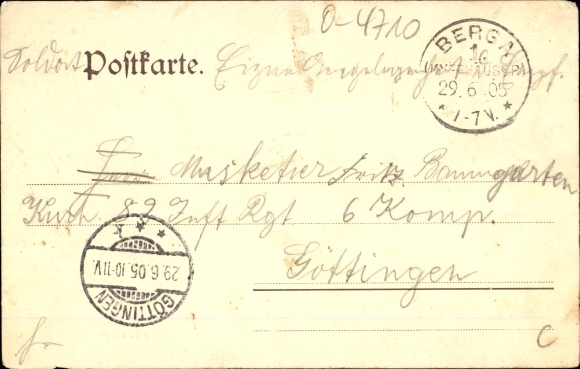 0-4710
Soldat Postkarte. Eigne Angelegenheit d. Empf.
BERGA
29.6.05
*1-7V.*
Herr Musketier Fritz Baumgarten
Kurh. 82 Inft Rgt 6 Komp.
Göttingen
GÖTTINGEN
29.6.05.10-11V.
C